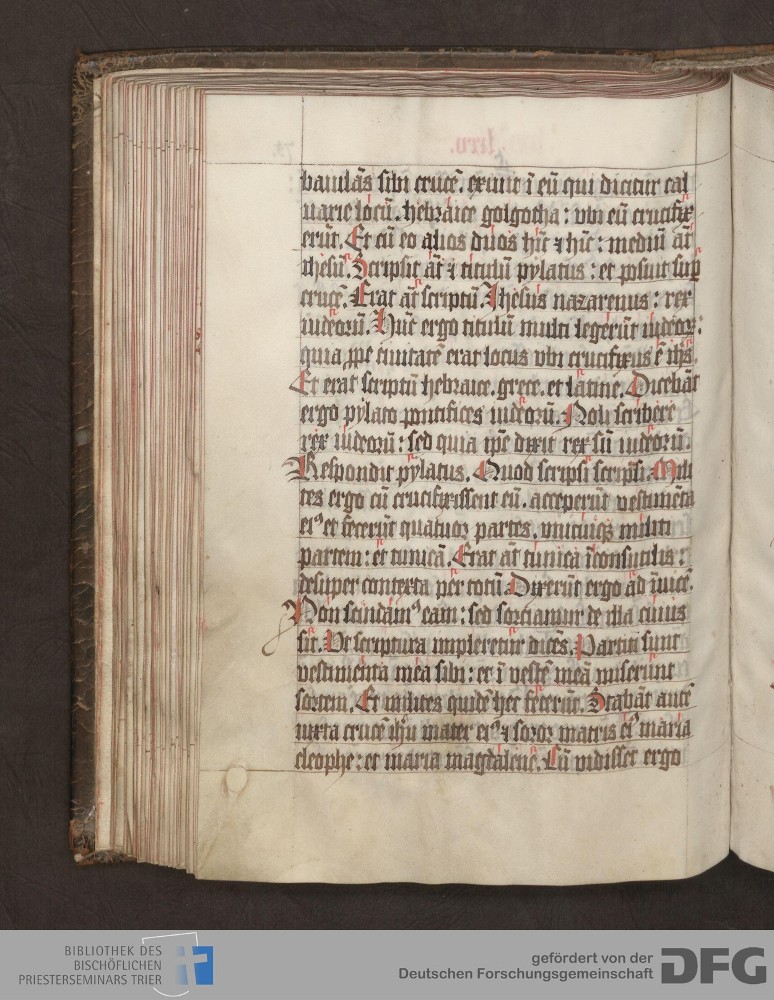 baiulās sibi crucē. exiuit ī eū qui dicitur cal
uarie locū. hebraice golgotha: vbi eū crucifix
erūt. Et cū eo alios duos hīc ⁊ hīc: mediū āt
ihesū. Scripsit āt ⁊ titulū pylatus: et posuit sup̄
crucē. Erat āt scriptū. Ihesus nazarenus: rex
iudeoꝝ. Hūc ergo titulū multi legerūt iudeoꝝ:
quia ꝓpe ciuitatē erat locus vbi crucifixus ē ih̄s.
Et erat scriptū hebraice. grece. et latine. Dicebāt
ergo pylato pontifices iudeoꝝ. Noli scribere
rex iudeoꝝ: sed quia ip̄e dixit rex sū iudeoꝝ.
Respondit pylatus. Quod scripsi scripsi. Mili
tes ergo cū crucifixissent eū. acceperūt vestimēta
eiꝰ et fecerūt quatuor partes. vnicuiqꝫ militi
partem: et tunicā. Erat āt tunica īconsutilis:
desuper contexta per totū. Dixerūt ergo ad īuicē.
Non scindamꝰ eam: sed sorciamur de illa cuius
sit. Vt scriptura impleretur dicēs. Partiti sunt
vestimenta mea sibi: et ī vestē meā miserunt
sortem. Et milites quidē hec fecerūt. Stabāt autē
iuxta crucē ih̄u mater eiꝰ ⁊ soror matris eiꝰ maria
cleophe: et maria magdalenē. Cū vidisset ergo
BIBLIOTHEK DES
BISCHÖFLICHEN
PRIESTERSEMINARS TRIER
gefördert von der
Deutschen Forschungsgemeinschaft
DFG